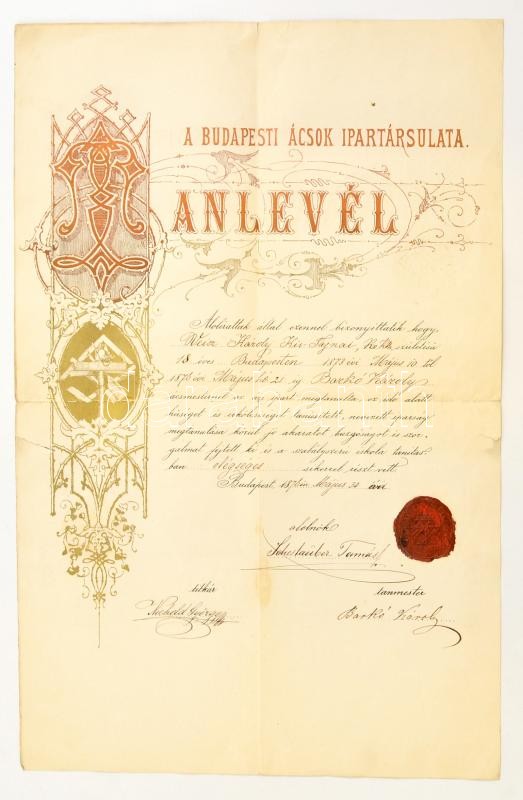 A BUDAPESTI ÁCSOK IPARTÁRSULATA.
TANLEVÉL
Alólirattak által ezennel bizonyittatik hogy
Weisz Károly
18 éves Budapesten 1873 évi Május 10 től
187 évi Május hó 21 ig Barkó Károly
ácsmesternél az ács ipart megtanulta, az idő alatt
hűséget és erkölcsiséget tanúsitott, nevezett iparság
megtanulása körül jó akaratot buzgóságot és szor
galmat fejtett ki és a szabályszerü iskola tanitás
ban elégséges sikerrel részt vett.
Budapest, 187 évi Május 21 én
alólnök
Tamás
titkár
tanmester
György
Barkó Károly